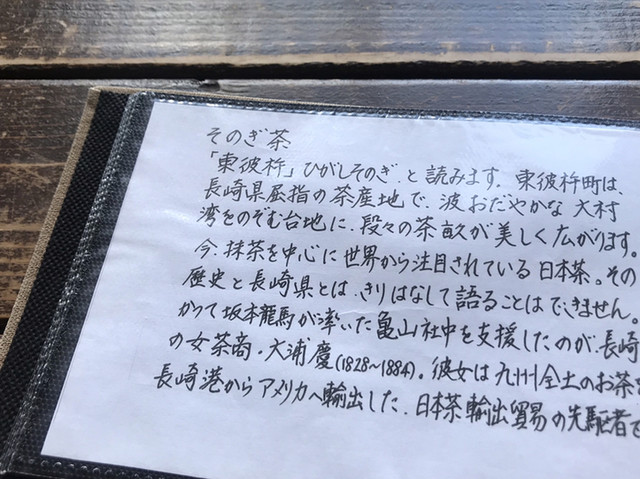 そのぎ茶
「東彼杵」ひがしそのぎ、と読みます。東彼杵町は、
長崎県屈指の茶産地で、波おだやかな大村
湾をのぞむ台地に、段々の茶畝が美しく広がります。
今、抹茶を中心に世界から注目されている日本茶。その
歴史と長崎県とは、きりはなして語ることはできません。
かつて坂本龍馬が率いた亀山社中を支援したのが、長崎
の女茶商・大浦慶(1828~1884)。彼女は九州全土のお茶
長崎港からアメリカへ輸出した、日本茶輸出貿易の先駆者で